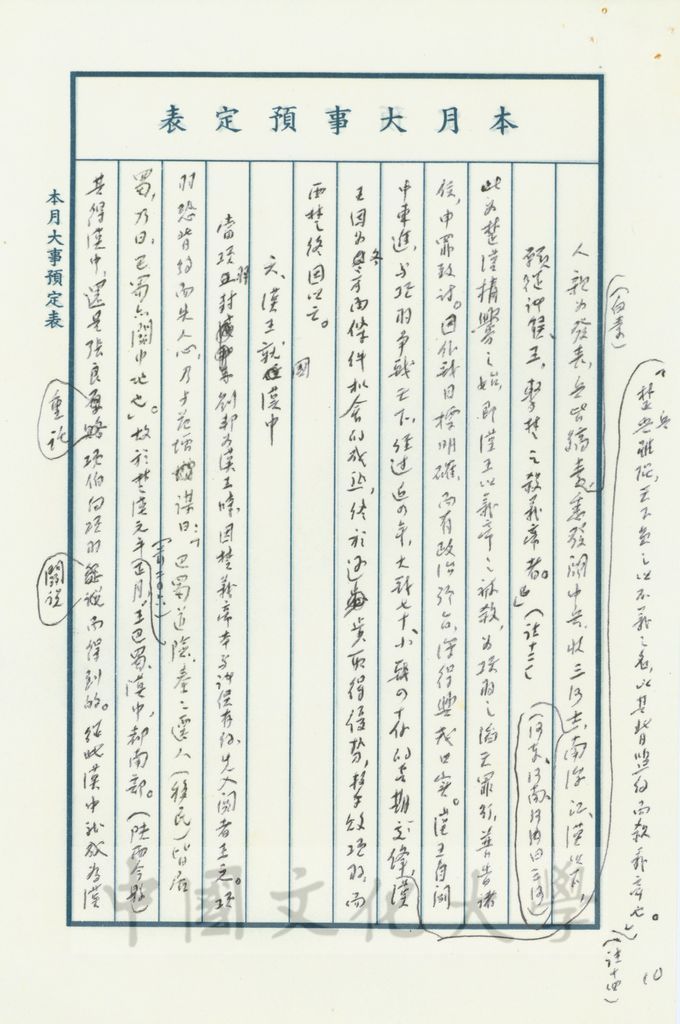 本月大事預定表
人親為發表,兵皆縞素,悉發關中兵,收三河士,南浮江漢以下,
(白素)
願從諸侯王,擊楚之殺義帝者。」(註十三)
(河東、河南、河內曰三河)
「楚兵雖強,天下負之以不義之名,以其背盟約而殺義帝也。」(註十四)
此為楚漢構釁之始,即漢王以義帝之被殺,為項羽之滔天罪行,普告諸
侯,申罪致討。因作戰目標明確,而有政治號召,深得興戎口實。漢王自關
中東進,與項羽爭戰天下,經過近四年,大戰七十、小戰四十餘的長期交鋒,漢
王因為各方面條件配合的成熟,終於逐步取得優勢,擊敗項羽,而
西楚終因以亡。
六、漢王就國漢中
當項羽封劉邦為漢王時,因楚義帝本與諸侯有約,先入關者王之。項
羽恐背約而失人心,乃與范增謀曰:「巴蜀道險,秦之遷人(移民)皆居
蜀,乃曰,巴蜀亦關中地也」。故於楚漢元年正月,王巴蜀、漢中,都南鄭。(陝西今縣)
其得漢中,還是張良厚賂項伯向項羽 而得到的。從此漢中就成為漢
重託
關說
本月大事預定表
10
中國文化大學